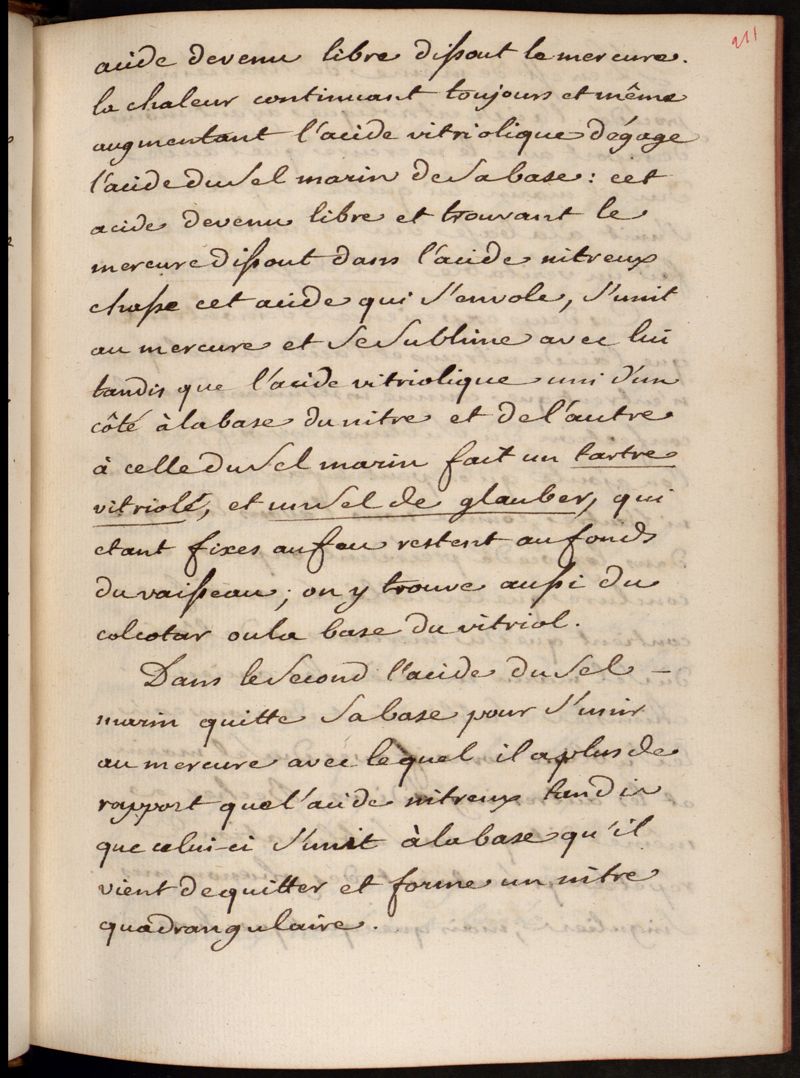 211
acide devenu libre dissout le mercure.
la chaleur continuant toujours et même
augmentant l'acide vitriolique dégage
l'acide du sel marin de sa base: cet
acide devenu libre et trouvant le
mercure dissout dans l'acide nitreux
chasse cet acide qui s'envole, s'unit
au mercure et se sublime avec lui
tandis que l'acide vitriolique uni d'un
côté à la base du nitre et de l'autre
à celle du sel marin fait un tartre
vitriolé, et un sel de glauber, qui
etant fixes au feu restent au fonds
du vaisseau; on y trouve aussi du
colcotar ou la base du vitriol.
Dans le second l'acide du sel –
marin quitte sa base pour s'unir
au mercure avec lequel il a plus de
rapport que l'acide nitreux tandis
que celui-ci s'unit à la base qu'il
vient de quitter et forme un nitre
quadrangulaire.